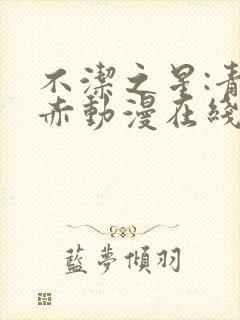 不潔之星:青
赤動漫在綫
藍夢傾羽